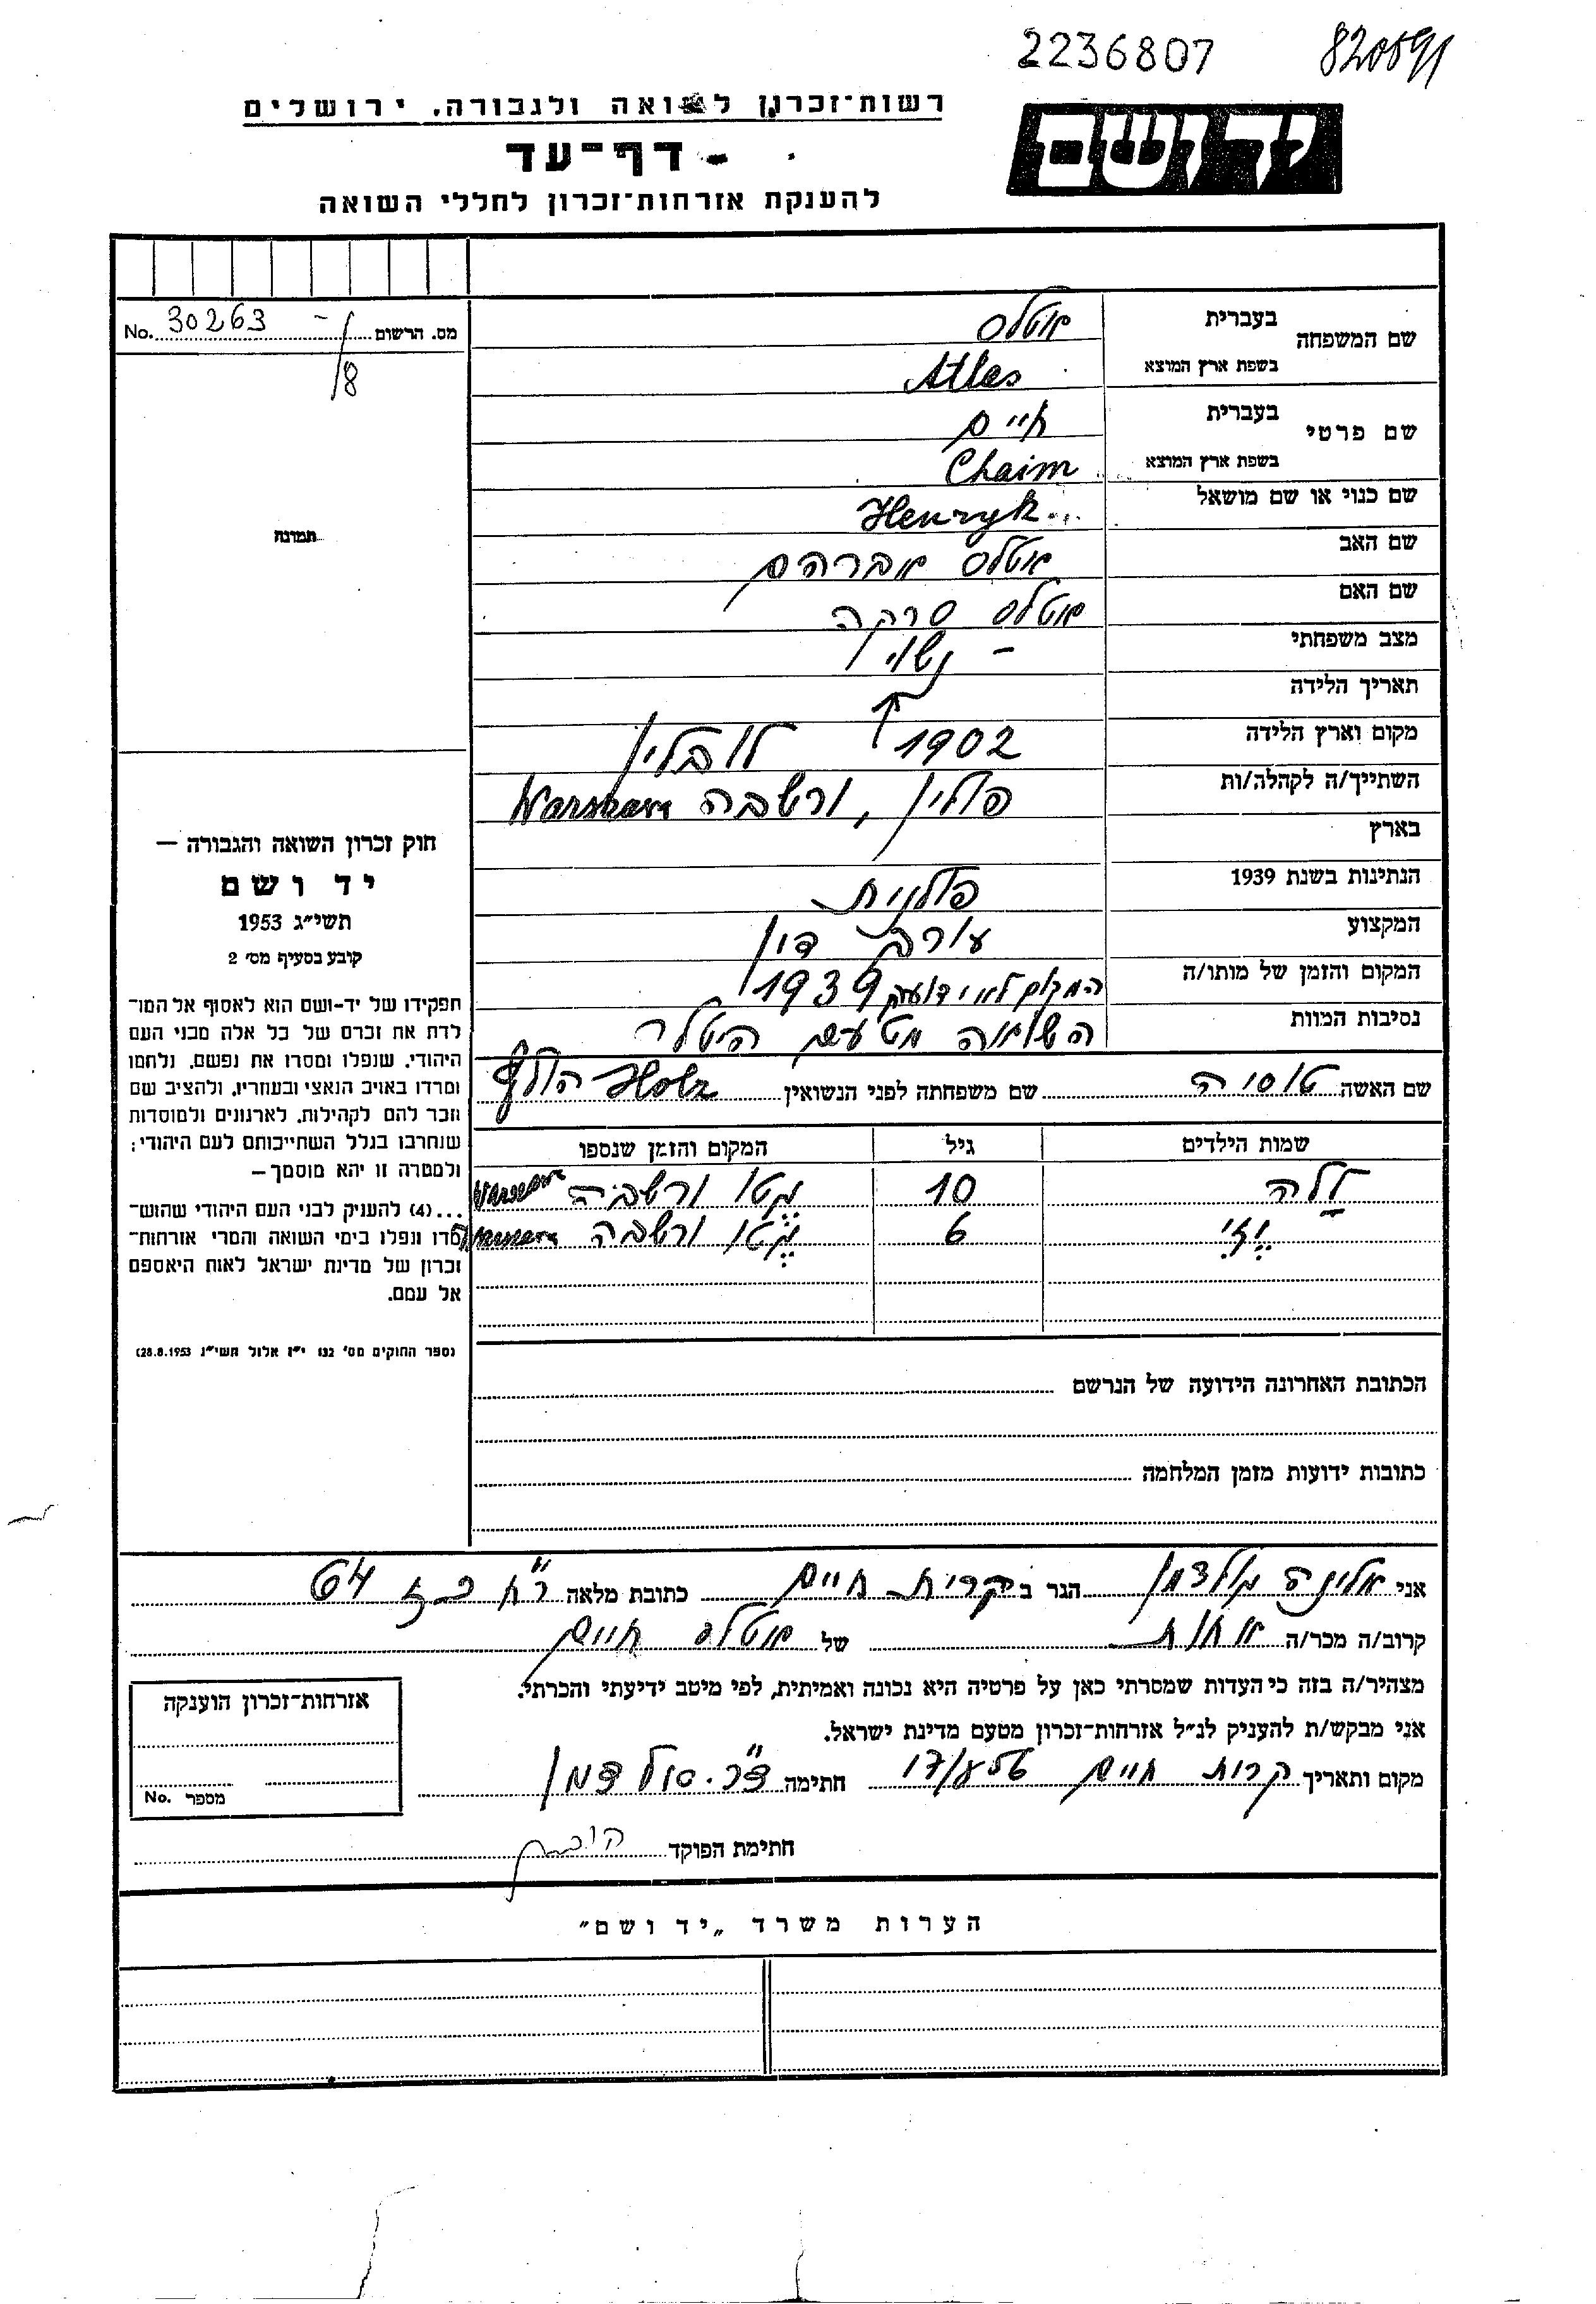 2236807
רשות־זכרון לשואה ולגבורה, ירושלים
דף־עד
להענקת אזרחות־זכרון לחללי השואה
יד ושם
מס. הרשום 30263 No.
8
תמונה
שם המשפחה
בעברית אטלס
בשפת ארץ המוצא Atlas
שם פרטי
בעברית חיים
בשפת ארץ המוצא Chaim
שם כנוי או שם מושאל Henryk
שם האב אטלס אברהם
שם האם אטלס סרקה
מצב משפחתי - נשוי
תאריך הלידה
מקום וארץ הלידה 1902 לובלין
השתייך/ה לקהלה/ות פולין, ורשבה Warshawa
בארץ
הנתינות בשנת 1939 פולנית
המקצוע עורב דין
המקום והזמן של מותו/ה המקום לא ידוע 1939
נסיבות המוות השואה מטעם היטלר
שם האשה טוסיה שם משפחתה לפני הנשואין Holz הולץ
שמות הילדים גיל המקום והזמן שנספו
לה 10 גטו ורשבה
6 גטו ורשבה
הכתובת האחרונה הידועה של הנרשם
כתובות ידועות מזמן המלחמה
חוק זכרון השואה והגבורה —
יד ושם
תשי״ג 1953
קובע בסעיף מס׳ 2
תפקידו של יד-ושם הוא לאסוף אל המו־
לדת את זכרם של כל אלה מבני העם
היהודי, שנפלו ומסרו את נפשם, נלחמו
ומרדו באויב הנאצי ובעוזריו, ולהציב שם
וזכר להם לקהילות, לארגונים ולמוסדות
שנחרבו בגלל השתייכותם לעם היהודי;
ולמטרה זו יהא מוסמך—
...(4) להעניק לבני העם היהודי שהוש־
מדו ונפלו בימי השואה והמרי אזרחות־
זכרון של מדינת ישראל לאות היאספם
אל עמם.
(ספר החוקים מס׳ 132 י״ז אלול תשי״ג 28.8.1953)
אני אלינה גולדמן הגר ב קרית חיים כתובת מלאה רח 64
קרוב/ה מכר/ה אחות של אטלס חיים
מצהיר/ה בזה כי העדות שמסרתי כאן על פרטיה היא נכונה ואמיתית, לפי מיטב ידיעתי והכרתי.
אני מבקש/ת להעניק לנ״ל אזרחות־זכרון מטעם מדינת ישראל.
מקום ותאריך קרית חיים חתימה גולדמן
אזרחות־זכרון הוענקה
מספר No.
חתימת הפוקד
הערות משרד „יד ושם״